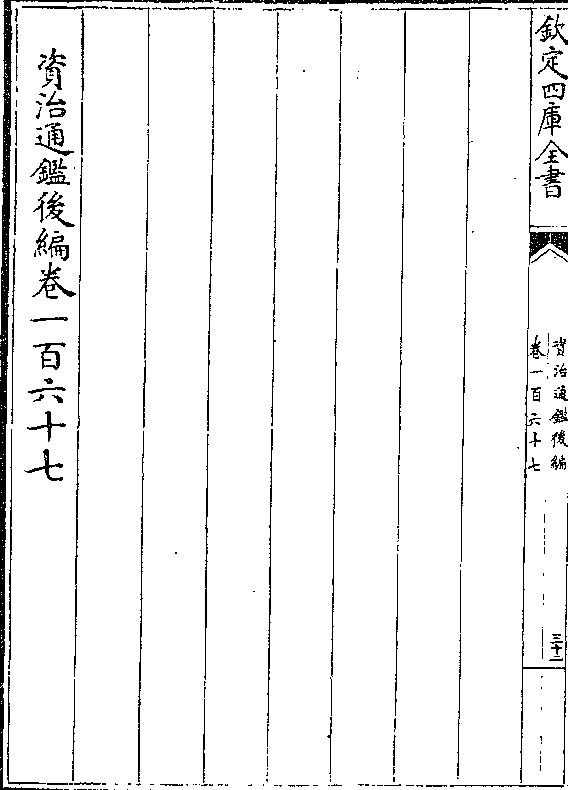 欽定四庫全書
資治通鑑後編
卷一百六十七
三十二
資治通鑑後編卷一百六十七